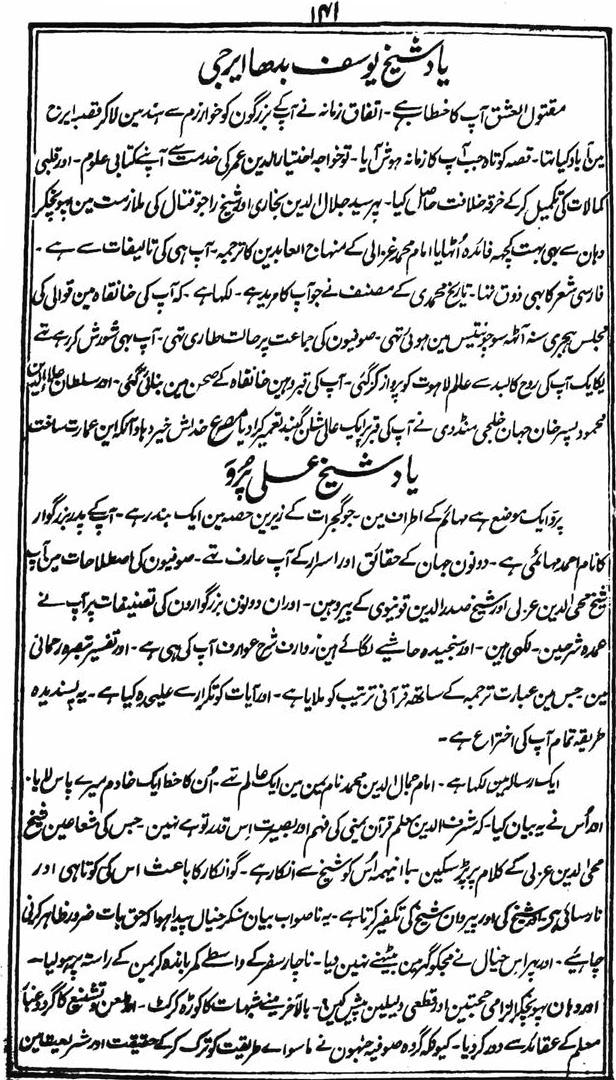 ۱۴۱
یاد شیخ یوسف بدھا ایرجی
مقتول العشق آپ کا خطاب ہے - اتفاق زمانہ نے آپکے بزرگون کو خوارزم سے ہند مین لا کر قصبہ ایرج
مین آباد کیا تھا - قصہ کوتاہ جب آپ کا زمانہ ہوش آیا - تو خواجہ اختیار الدین عمر کی خدمت سے آپنے کتابی علوم - اور قلبی
کمالات کی تکمیل کر کے خرقہ خلافت حاصل کیا - پہر سید جلال الدین بخاری اور شیخ راجو قتال کی ملازمت مین پہونچکر
وہان سے بہی بہت کچھہ فائدہ اُٹھایا امام محمد غزالی کے منہاج العابدین کا ترجمہ - آپ ہی کی تالیفات سے ہے -
فارسی شعر کا بہی ذوق تھا - تاریخ محمدی کے مصنف نے جو آپ کا مرید ہے - لکھا ہے - کہ آپ کی خانقاہ مین قوالی کی
مجلس ہجری سنہ آٹھہ سو چونتیس مین ہوئی تھی - صوفیون کی جماعت پر حالت طاری تھی - آپ بہی شورش کر رہے تھے
یکایک آپ کی روح کالبد سے عالم لاہوت کو پرواز کر گئی - آپ کی قبر وہین خانقاہ کے صحن مین بنائی گئی - اور سلطان علاء الدین
محمود پسر خان جہان خلجی منڈوی نے آپ کی قبر پر ایک عالی شان گنبد تعمیر کرا دیا مصرع خداش خیر دہاد آنکہ این عمارت ساخت
یاد شیخ علی پرو
پرو ایک موضع ہے مہائم کے اطراف مین - جو گجرات کے زیرین حصہ مین ایک بندر ہے - آپ کے پدر بزرگوار
کا نام احمد مہائمی ہے - دونون جہان کے حقائق اور اسرار کے آپ عارف تھے - صوفیون کی اصطلاحات مین آپ
شیخ محی الدین عربی اور شیخ صدر الدین قونیوی کے پیرو ہین - اور ان دونون بزرگوارون کی تصنیفات پر آپ نے
عمدہ شرحین - لکھی ہین - اور سنجیدہ حاشیے لگائے ہین زوارف شرح عوارف آپ کی ہی ہے - اور تفسیر تبصیر رحمانی
مین جس مین عبارت ترجمہ کے ساتھہ قرآنی ترتیب کو ملایا ہے - اور آیات کو تکرار سے علیحدہ کیا ہے - یہ پسندیدہ
طریقہ تمام آپ کی اختراع ہے -
ایک رسالہ مین لکھا ہے - امام جمال الدین محمد نام یمن مین ایک عالم تھے - اُن کا خط ایک خادم میرے پاس لایا -
اور اُس نے یہ بیان کیا - کہ شرف الدین معلم قرآن یمنی کی فہم اور بصیرت اِس قدر تو ہے نہین - جس کی شعاعین شیخ
محی الدین عربی کے کلام پر پڑ سکین - باینہمہ اُس کو شیخ سے انکار ہے - گو انکار کا باعث اس کی کوتاہی اور
نارسائی ہی اور شیخ کی اور پیروان شیخ کی تکفیر کرتا ہے - یہ ناصواب بیان سنکر خیال پیدا ہوا کہ حق بات ضرور ظاہر کرنی
چاہیے - اور پہر اس خیال نے مجکو گھر مین بیٹھنے نہین دیا - ناچار سفر کے واسطے کمر باندھ کر یمن کے راستہ پر ہو لیا -
اور وہان پہونچکر الزامی حجتین اور قطعی دلیلین پیش کین - بالآخر مینے شبہات کا کوڑہ کرکٹ - اور طعن و تشنیع کا گرد و غبار
معلم کے عقائد سے دور کر دیا - کیونکہ گروہ صوفیہ جنہون نے ماسوائے طریقت کو ترک کر کے حقیقت اور شریعت مین